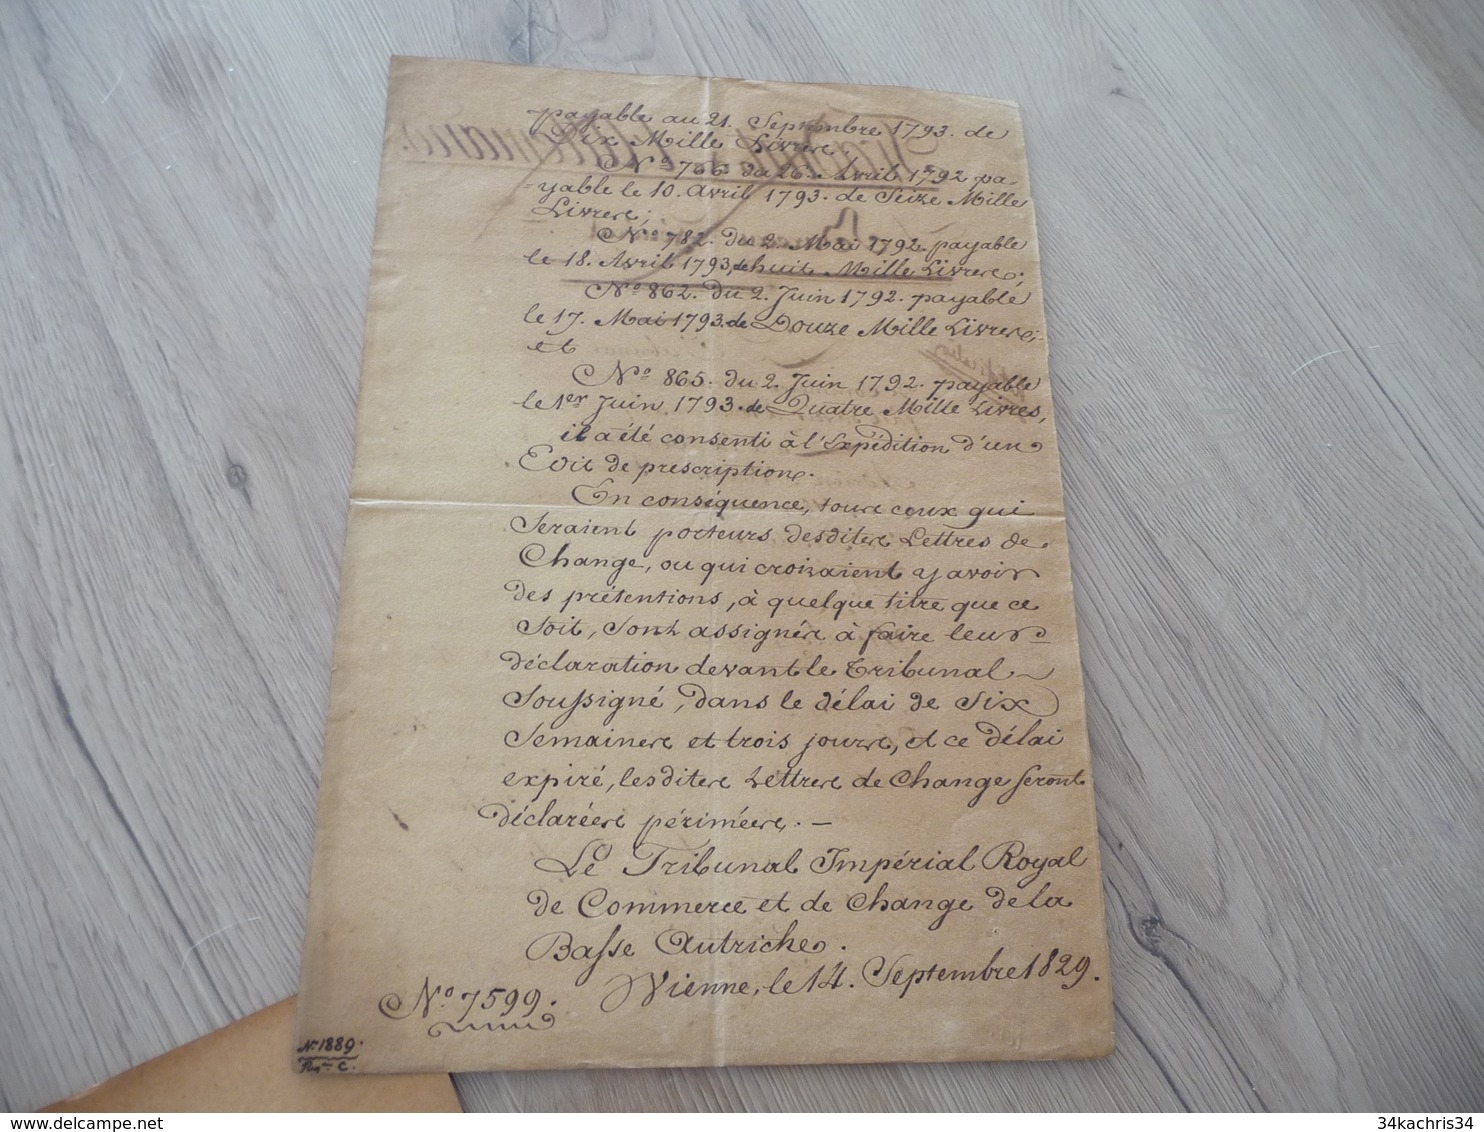 payable au 21. Septembre 1793. de
Dix Mille Livres.
No 766 du 26. Avril 1792 pa-
-yable le 10. Avril 1793. de Seize Mille
Livres;
No 782. du 2. Mai 1792. payable
le 18. Avril 1793, de huit Mille Livres;
No 862. du 2. Juin 1792. payable
le 17. Mai 1793. de Douze Mille Livres;
et
No 865. du 2. Juin 1792. payable
le 1er Juin 1793. de Quatre Mille Livres,
il a été consenti à l'Expédition d'un
Edit de prescription.
En conséquence, tous ceux qui
seraient porteurs desdites Lettres de
Change, ou qui croiraient y avoir
des prétentions, à quelque titre que ce
soit, sont assignés à faire leur
déclaration devant le Tribunal
Soussigné, dans le délai de Six
Semaines et trois jours, et ce délai
expiré, lesdites Lettres de Change seront
déclarées périmées. —
Le Tribunal Impérial Royal
de Commerce et de Change de la
Basse Autriche.
Vienne, le 14. Septembre 1829.
No 7599.
No 1889.
C.
34kachris34